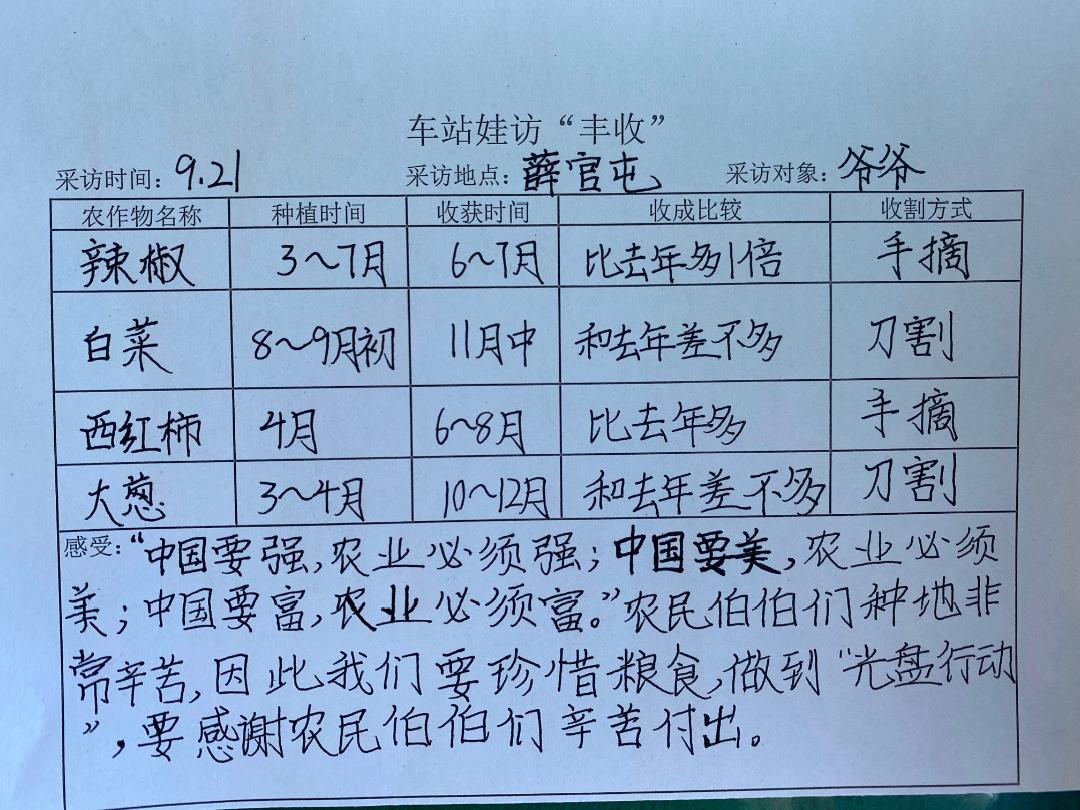 车站娃访“丰收”
采访时间：9.21 采访地点：薛官屯 采访对象：爷爷
农作物名称 种植时间 收获时间 收成比较 收割方式
辣椒 3～7月 6～7月 比去年多1倍 手摘
白菜 8～9月初 11月中 和去年差不多 刀割
西红柿 4月 6～8月 比去年多 手摘
大葱 3～4月 10～12月 和去年差不多 刀割
感受：“中国要强，农业必须强；中国要美，农业必须
美；中国要富，农业必须富。”农民伯伯们种地非
常辛苦，因此我们要珍惜粮食，做到“光盘行动
”，要感谢农民伯伯们辛苦付出。